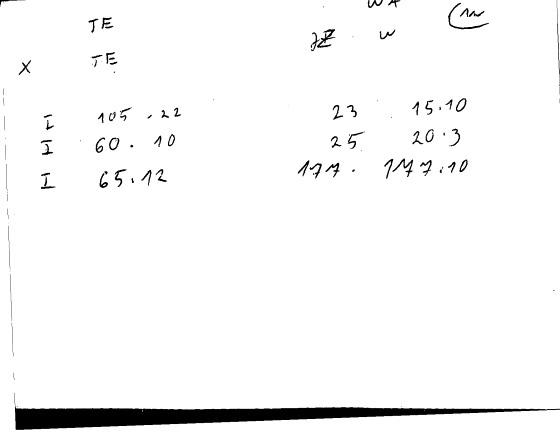 TE
X TE W
I 105.22 23 15.10
I 60.10 25 20.3
I 65.12 177. 177.10